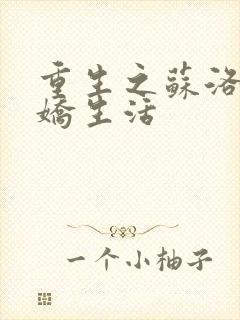 重生之蘇洛
嬌生活
一个小柚子